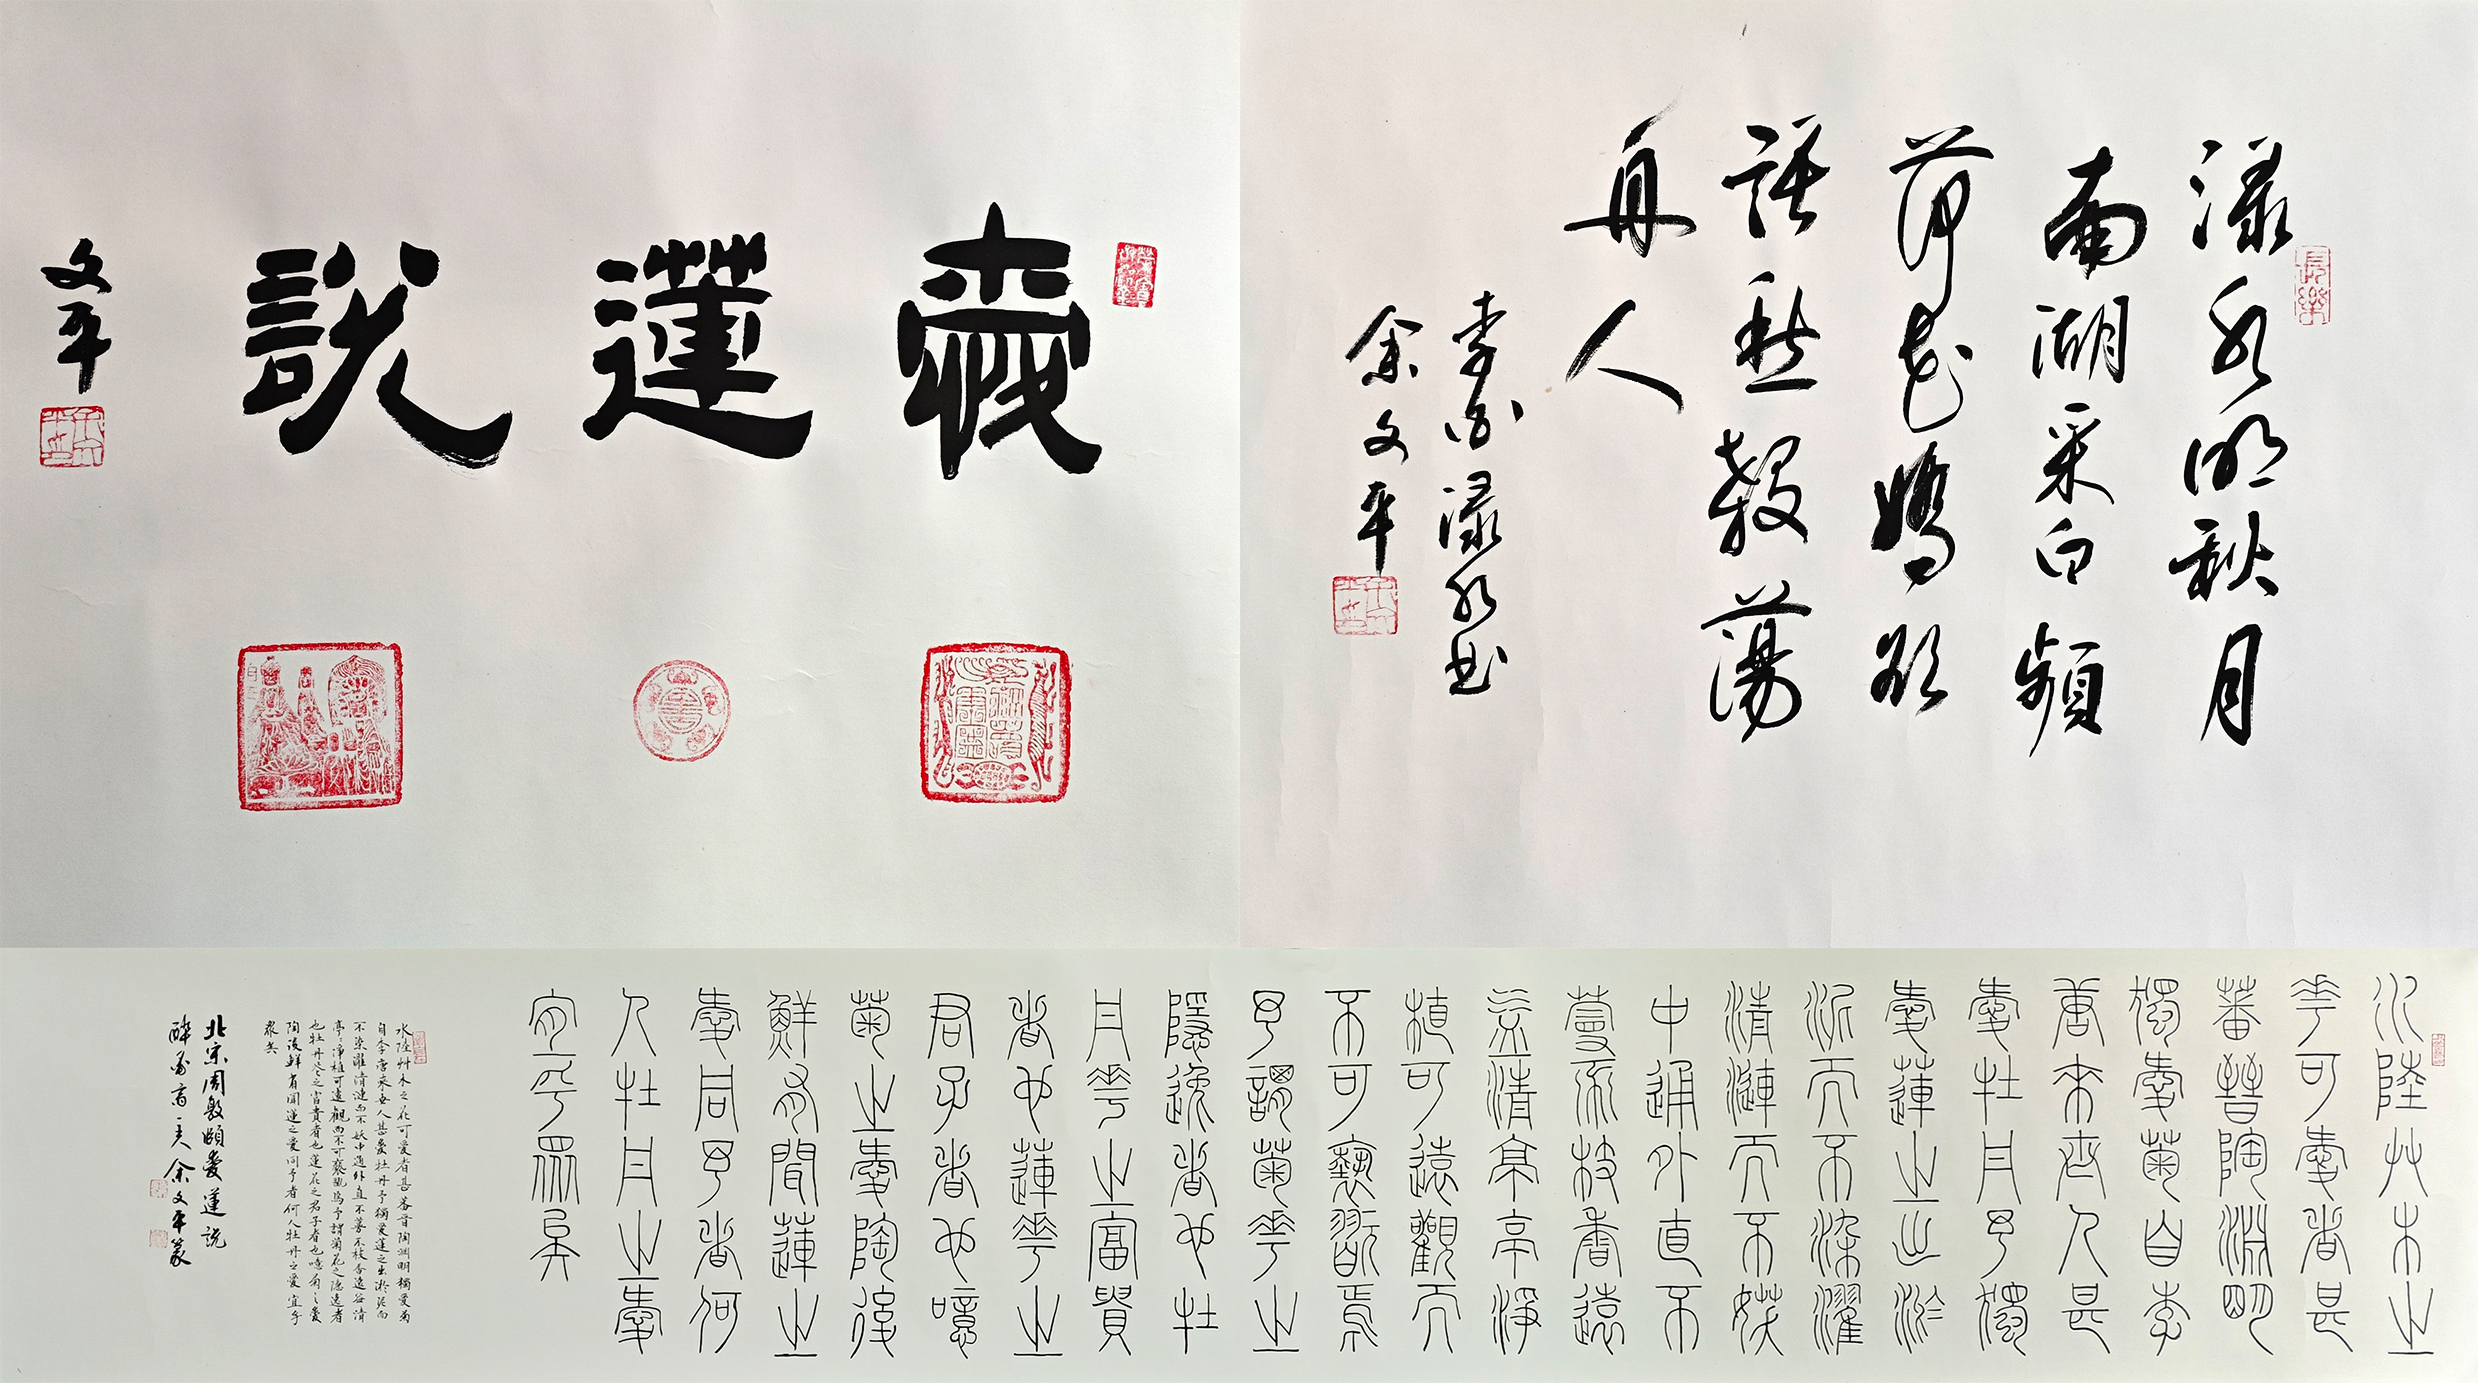 愛蓮說
文平
長樂
淥水明秋月
南湖采白蘋
荷花嬌欲
語愁殺蕩
舟人
李白淥水曲
余文平
水陸艸木之
華可愛者甚
蕃晉陶淵明
獨愛菊自李
唐來世人甚
愛牡丹予獨
愛蓮之出淤
泥而不染濯
清漣而不妖
中通外直不
蔓不枝香遠
益清亭亭淨
植可遠觀而
不可褻翫焉
予謂菊華之
隱逸者也牡
丹華之富貴
者也蓮華之
君子者也噫
菊之愛陶後
鮮有聞蓮之
愛同予者何
人牡丹之愛
宜乎眾矣
水陸艸木之花可愛者甚蕃晉陶淵明獨愛菊
自李唐來世人甚愛牡丹予獨愛蓮之出淤泥而
不染濯清漣而不妖中通外直不蔓不枝香遠益清
亭亭淨植可遠觀而不可褻翫焉予謂菊花之隱逸者
也牡丹花之富貴者也蓮花之君子者也噫菊之愛
陶後鮮有聞蓮之愛同予者何人牡丹之愛宜乎
眾矣
北宋周敦頤愛蓮說
余文平篆